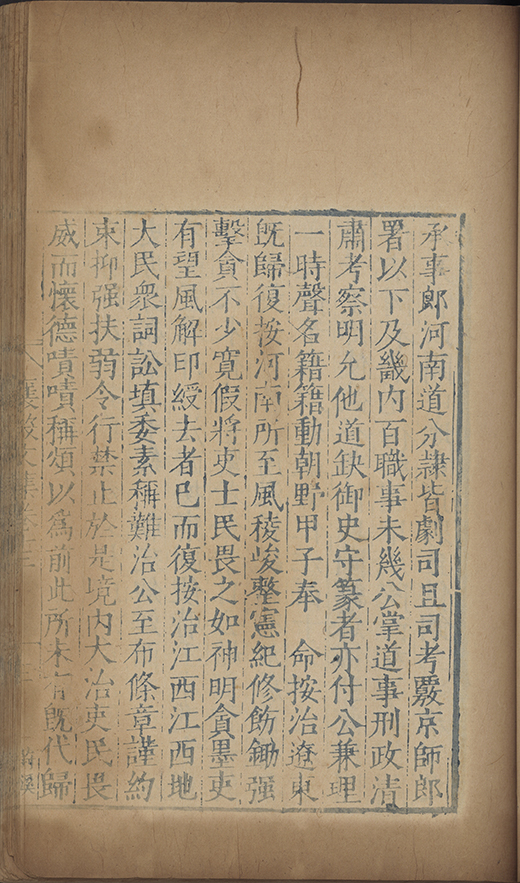 承事郎河南道分隸皆劇司且司考覈京師郎
署以下及畿内百職事未幾公掌道事刑政清
肅考察明允他道缺御史守篆者亦付公兼理
一時聲名籍籍動朝野甲子奉　命按治遼東
既歸復按河南所至風稜峻整憲紀修飭鋤强
擊貪不少寛假將吏士民畏之如神明貪墨吏
有望風解印綬去者已而復按治江西江西地
大民衆詞訟填委素稱難治公至布條章謹約
束抑强扶弱令行禁止於是境内大治吏民畏
威而懷德嘖嘖稱頌以爲前此所未有既代歸